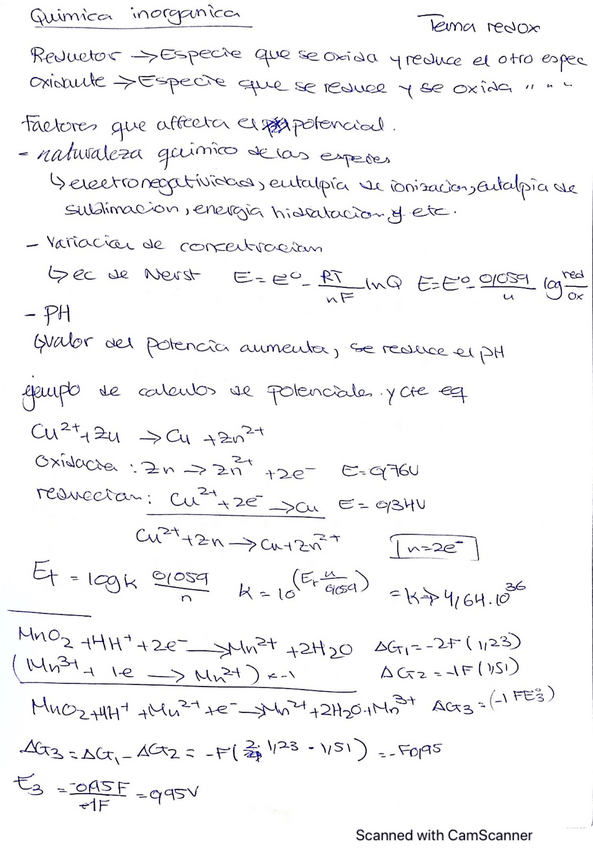 Quimica inorganica
Tema redox
Reductor → Especie que se oxida y reduce el otro espec
oxidante → Especie que se reduce y se oxida " " "
Factores que affecta el potencial.
- naturaleza quimico de las especies
↳ electronegatividad, entalpía de ionizacion, entalpia de
sublimacion, energia hidratacion y etc.
- Variacion de concentracion
↳ ec de Nerst E = E° - RT/nF lnQ E = E° - 0,059/n log red/ox
- PH
↳ valor del potencia aumenta, se reduce el pH
ejemplo de calculos de potenciales y cte eq
Cu²⁺ + Zn → Cu + Zn²⁺
Oxidacion : Zn → Zn²⁺ + 2e⁻ E = 0,76V
reduccion : Cu²⁺ + 2e⁻ → Cu E = 0,34V
Cu²⁺ + Zn → Cu + Zn²⁺ n=2e⁻
E_T = log K 0,059/n K = 10^(E_T n/0,059) = K → 4,64.10³⁶
MnO₂ + 4H⁺ + 2e⁻ → Mn²⁺ + 2H₂O ΔG₁ = -2F (1,23)
(Mn³⁺ + 1e → Mn²⁺) x -1 ΔG₂ = -1F (1,51)
MnO₂ + 4H⁺ + Mn²⁺ + e⁻ → Mn²⁺ + 2H₂O + Mn³⁺ ΔG₃ = (-1 FE°₃)
ΔG₃ = ΔG₁ - ΔG₂ = -F (2. 1,23 - 1,51) = -F0,95
E₃ = -0,95F/-1F = 0,95V
Scanned with CamScanner